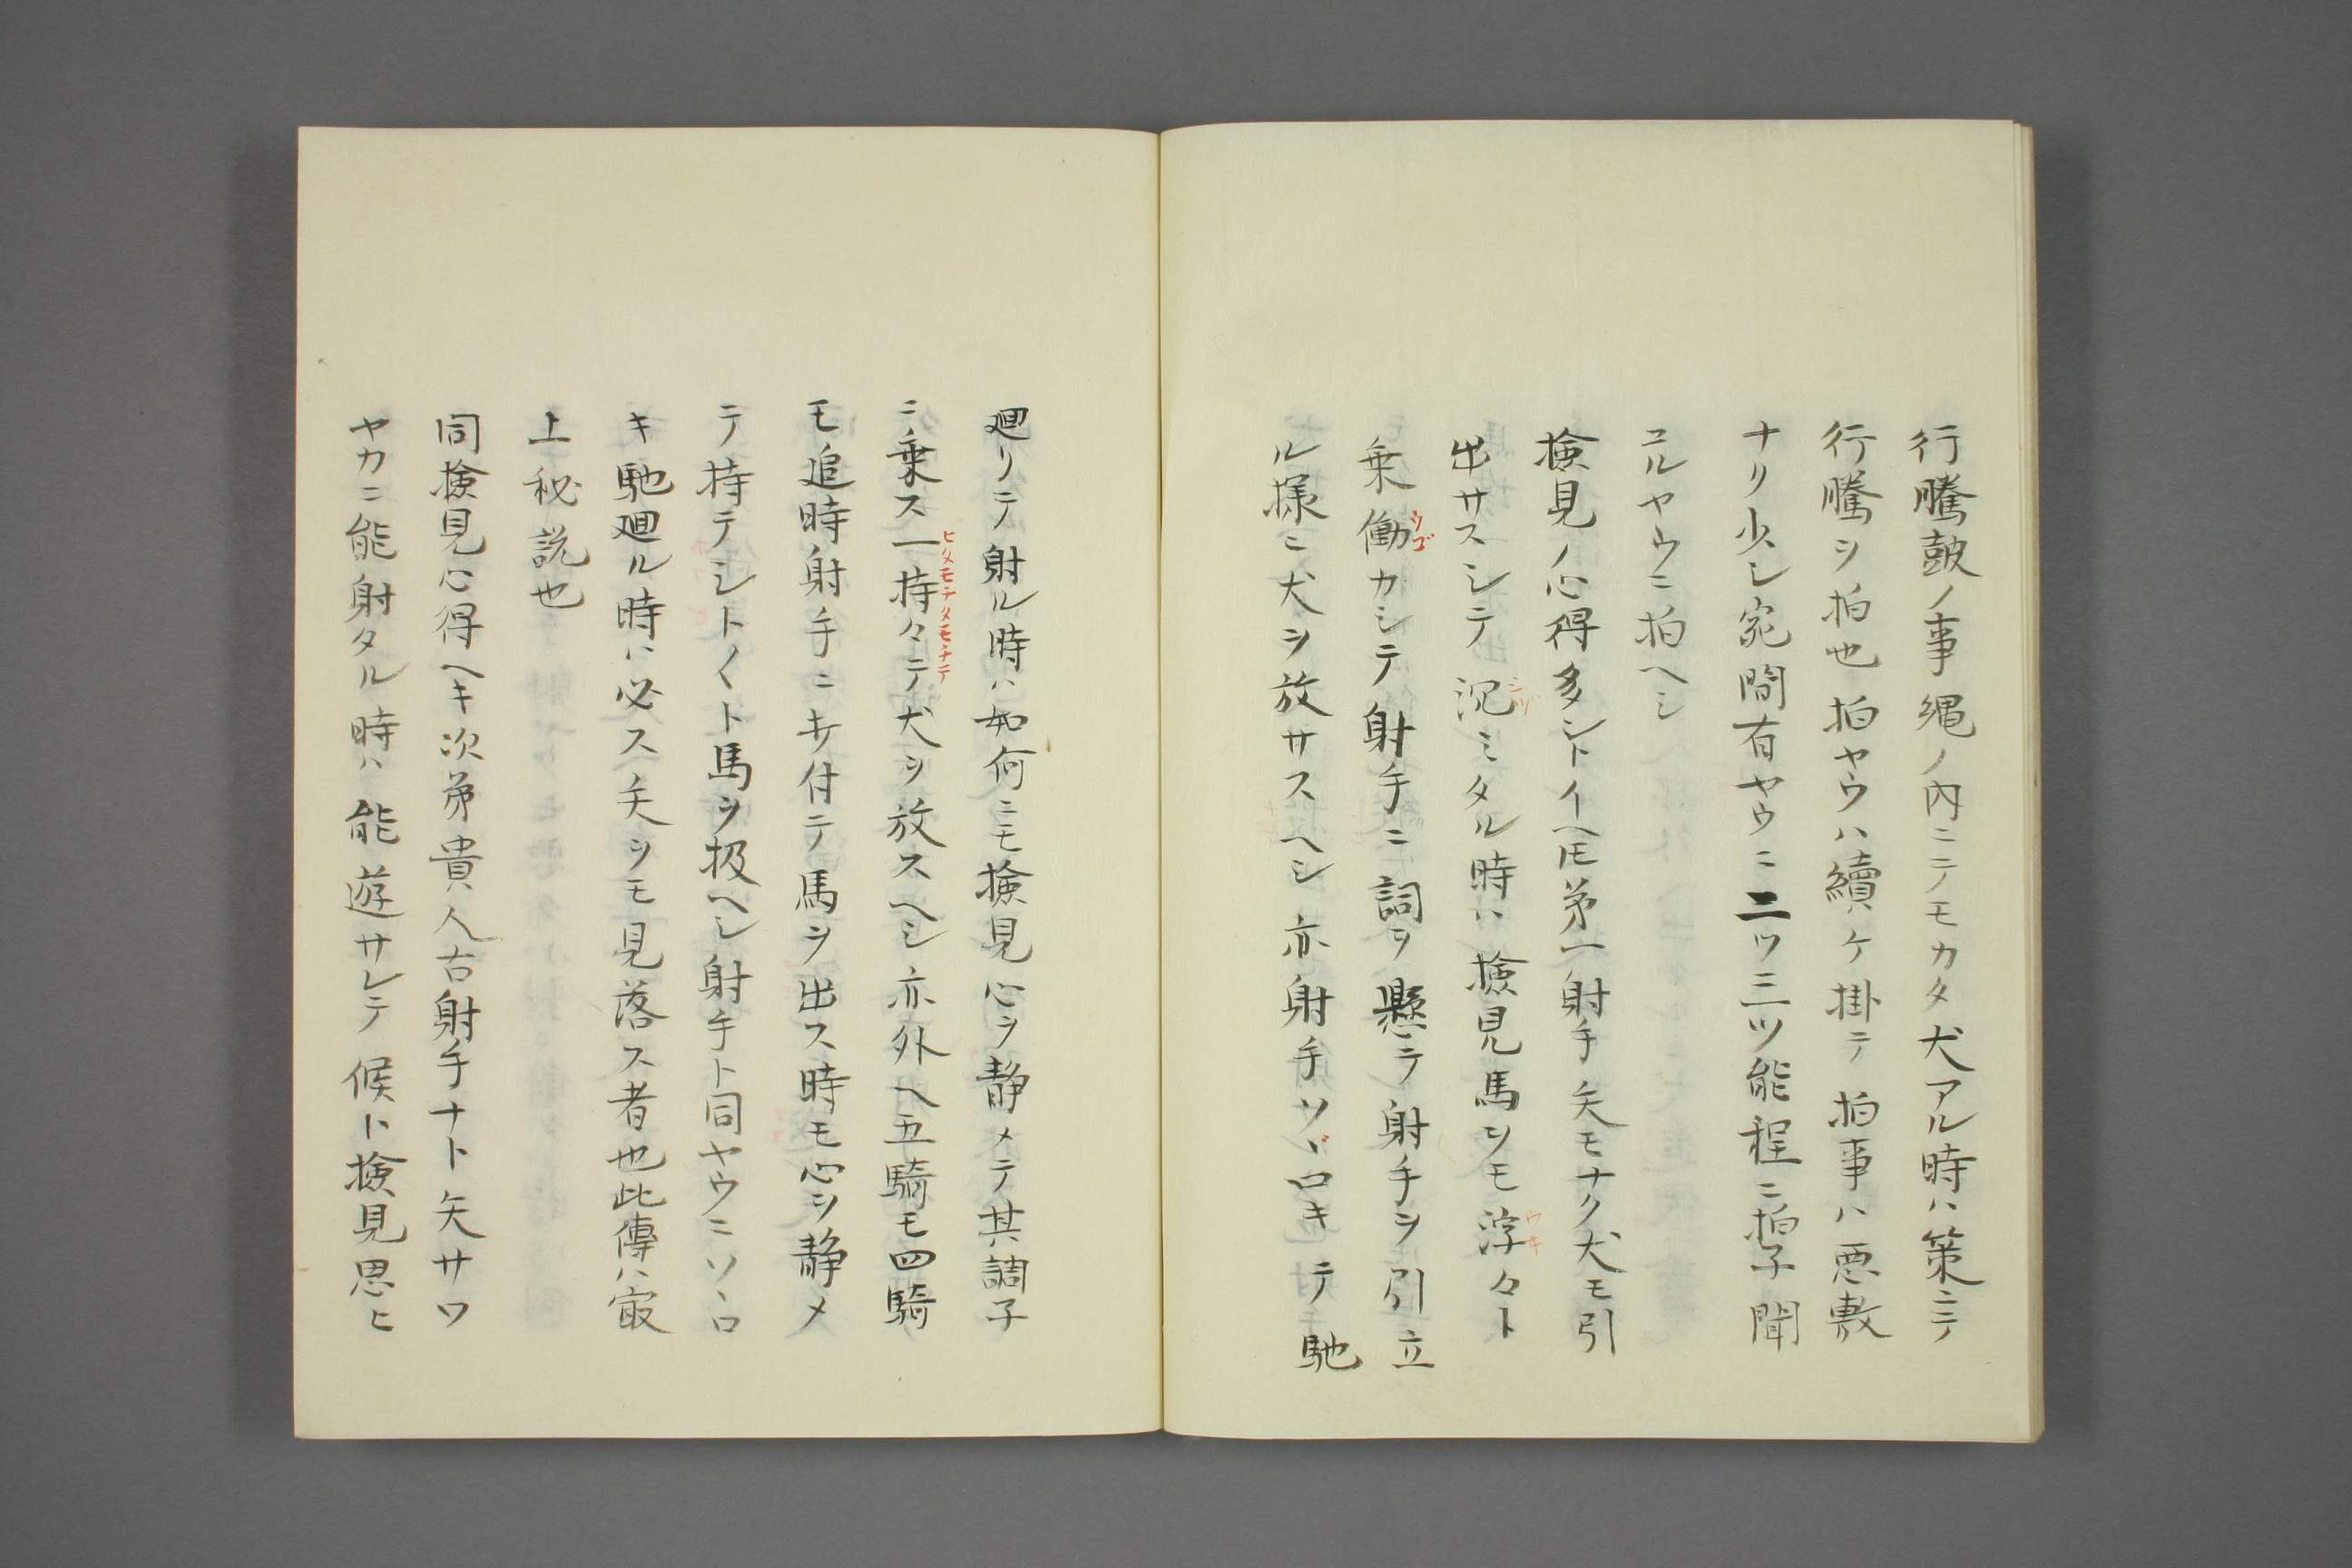 行騰鼓ノ事縄ノ内ニテモカタ犬アル時ハ策ニテ
行騰ヲ拍也拍ヤウハ續ケ掛テ拍事ハ悪敷
ナリ少シ宛間有ヤウニ二ツ三ツ能程ニ拍子聞
ユルヤウニ拍ヘシ
検見ノ心得多シトイヘ𪜈第一射手矢モナク犬モ引
出サスシテ沉ミタル時ハ検見馬ヲモ浮々ト
乗働カシテ射手ニ詞ヲ懸テ射手ヲ引立
ル様ニ犬ヲ放サスヘシ亦射手ソヾロキテ馳
廻リテ射ル時ハ如何ニモ検見心ヲ静メテ其調子
ニ乗ス一持々テ犬ヲ放スヘシ亦外ヘ五騎モ四騎
モ追時射手ニ付テ馬ヲ出ス時モ心ヲ静メ
テ持テシト〱ト馬ヲ扱ヘシ射手ト同ヤウニソヽロ
キ馳廻ル時ハ必ス矢ヲモ見落ス者也此傳ハ㝡
上秘説也
同検見心得ヘキ次第貴人古射手ナト矢サワ
ヤカニ能射タル時ハ能遊サレテ候ト検見思ヒ